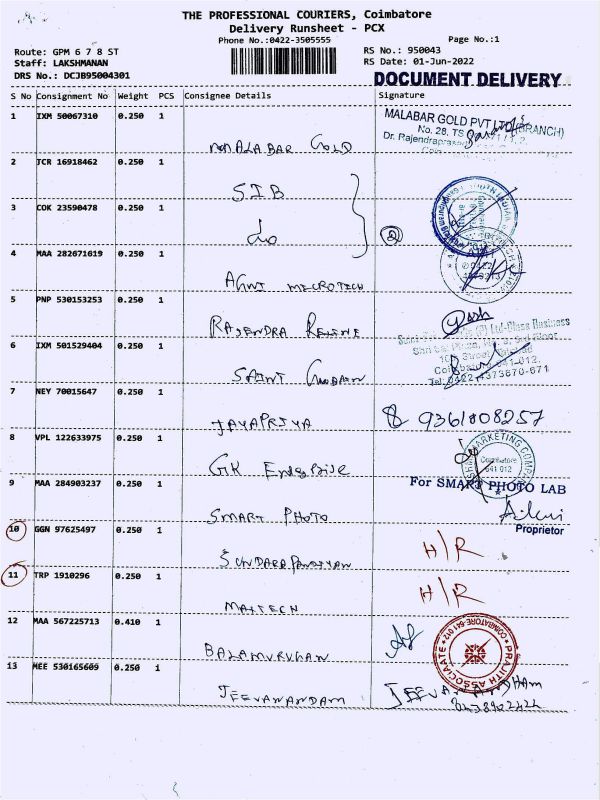 THE PROFESSIONAL COURIERS, Coimbatore
Delivery Runsheet - PCX
Phone No.:0422-3505555
Page No.:1
Route: GPM 6 7 8 ST
RS No.: 950043
Staff: LAKSHMANAN
RS Date: 01-Jun-2022
DRS No.: DCJB95004301
DOCUMENT DELIVERY
S No Consignment No Weight PCS Consignee Details Signature
1 IXM 50067310 0.250 1
MALABAR GOLD PVT LTD (BRANCH)
No. 28, TS
Dr. Rajendraprasad
MALABAR GOLD
2 TCR 16918462 0.250 1
SIB
3 COK 23590478 0.250 1
do
4 MAA 282671619 0.250 1
AGNI MICROTECH
5 PNP 530153253 0.250 1
RAJENDRA
6 IXM 501529404 0.250 1
SAINT GOBAIN
7 NEY 70015647 0.250 1
JAYAPRIYA
9361808257
8 VPL 122633975 0.250 1
GK Enterprise
MARKETING COMPANY
Coimbatore
641 012
9 MAA 284903237 0.250 1
For SMART PHOTO LAB
SMART PHOTO
Proprietor
10 GGN 97625497 0.250 1
SUNDARAPANDIYAN
H/R
11 TRP 1910296 0.250 1
MAITECH
H/R
12 MAA 567225713 0.410 1
BALAMURUGAN
PRAJITH ASSOCIAATE
COIMBATORE-641 012
13 MEE 530165609 0.250 1
JEEVANANDAM
JEEVANANDHAM